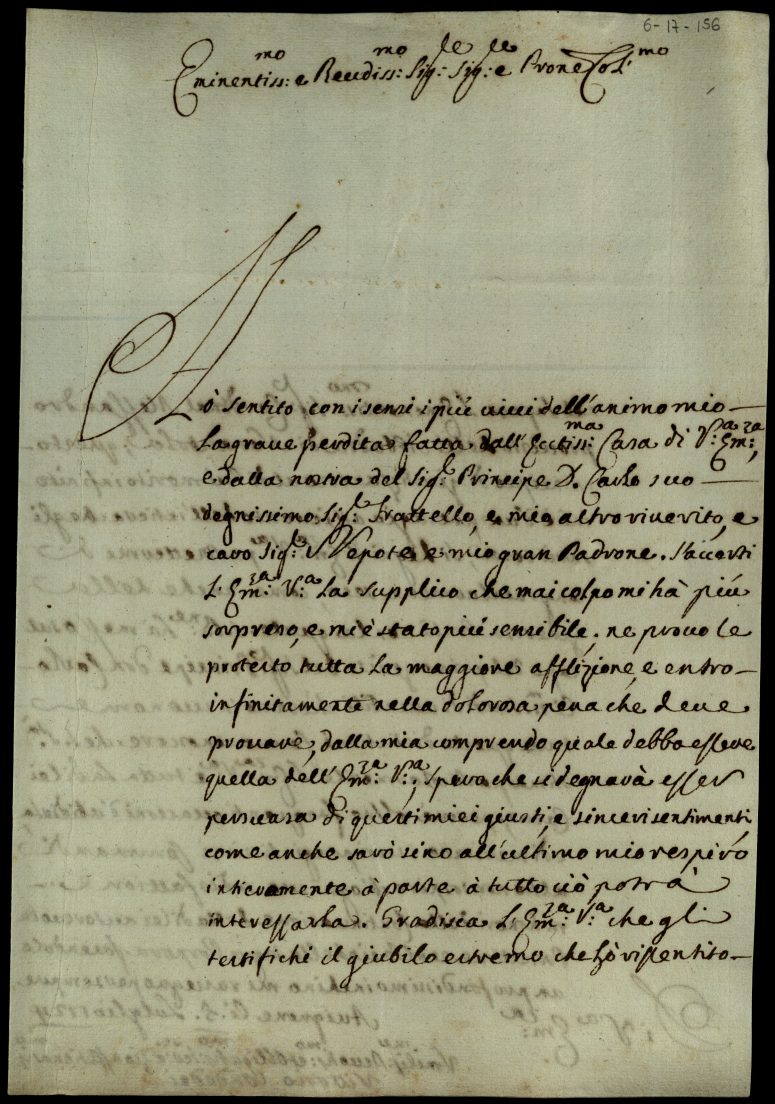 6-17-156
Eminentiss:mo e Reudiss:mo Sig:le Sig:le e Prone Col:mo
Hò sentito con i sensi i più viui dell'animo mio
La graue perdita fatta dall'Ecctiss:ma Casa di V:a Em:za,
e dalla nostra del Sig:r Principe D. Carlo suo
degnissimo Sig:r Frattello, e mio altro riuerito, e
caro Sig:r Nepote, e mio gran Padrone. S'accerti
L'Em:za V:a La supplico che mai colpo mi hà più
sorpreso, e mi è stato più sensibile, ne prouo le
protesto tutta La maggiore afflizione, e entro
infinitamente nella dolorosa pena che deue
prouare, dalla mia comprendo quale debba essere
quella dell'Em:za V:a, spero che si degnarà esser
persuasa di questi miei giusti, e sinceri sentimenti
come anche sarò sino all'ultimo mio respiro
intieramente à parte à tutto ciò potrà
interessarla. Gradisca L'Em:za V:a che gli
testifichi il giubilo estremo che hò rissentito